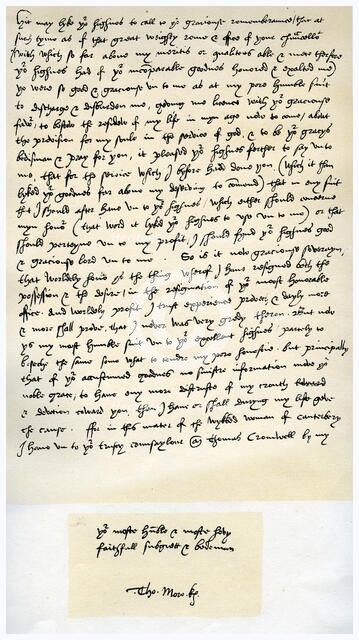 Hit may like yor highnes to call to yor graciouse remembraunce, that at
such tyme as of that great weighty rome & office of yor chauncellor
(with which so far above my meritis or qualitees able & mete therefore
yor highnes had of yor incoparable goodnes honored & exalted me)
ye were so good & graciouse vn to me as at my pore humble suit
to discharge & disburden me, geving me licence with yor graciouse
favor, to bestow the residew of my life in myn age now to come, about
the provision for my soule in the service of god, & to be yor gracys
bedisman & pray for you, it pleased yor highnes ferther to say vn to
me, that for the service which I byfore had done you (which it then
lyked yor goodnes far above my deserving to comend) that in eny suit
that I should after have vn to yor highnes, which other should concerne
myn honor (that word it lyked yor highnes to vse vn to me) or that
should pertayne vn to my profit, I should fynd yor highnes good
& graciouse lord vn to me. So is it now graciouse soverayn,
that worldely honor ys the thing wherof I have resigned both the
possession & the desire, in the resignation of yor moost honorable
office. And worldely profit, I trust experience proveth & dayly more
& more shall prove, that I never was very gredy theron. But now
ys my most humble suit vn to yor excellent highnes, partely to
biseche the same some what to tendre my pore honestie. but principally
that of yor accustumed goodnes no sinistre information move yor
noble grace, to have eny more distruste of my trouth toward
& devotion toward you, then I have or shall during my life geve
the cause. ffor in this mater of the wykked woman of Canterbery
I have vn to yor trusty counsaylour Thomas Cromwell by my
yor moste hüble & moste hevy
faithfull subgiett & bedeman
Tho. More. kg.